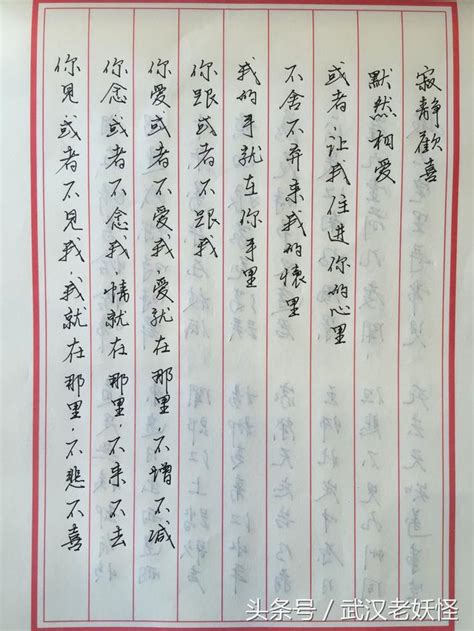 你见或者不见我，我就在那里，不悲不喜
你念或者不念我，情就在那里，不来不去
你爱或者不爱我，爱就在那里，不增不减
你跟或者不跟我
我的手就在你手里
不舍不弃来我的怀里
或者，让我住进你的心里
默然相爱
寂静歡喜
头条号 / 武汉老妖怪